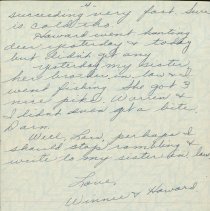 4.
succeeding very fast. Sure
is cold tho.
Howard went hunting
deer yesterday & today
but didn't get any
Yesterday my sister,
her brother in law & I
went fishing. She got 3
nice pike. Warren &
I didn't even get a bite
Darn.
Well, Lou, perhaps I
should stop rambling &
write to my sister in law
Love,
Winnie & Howard